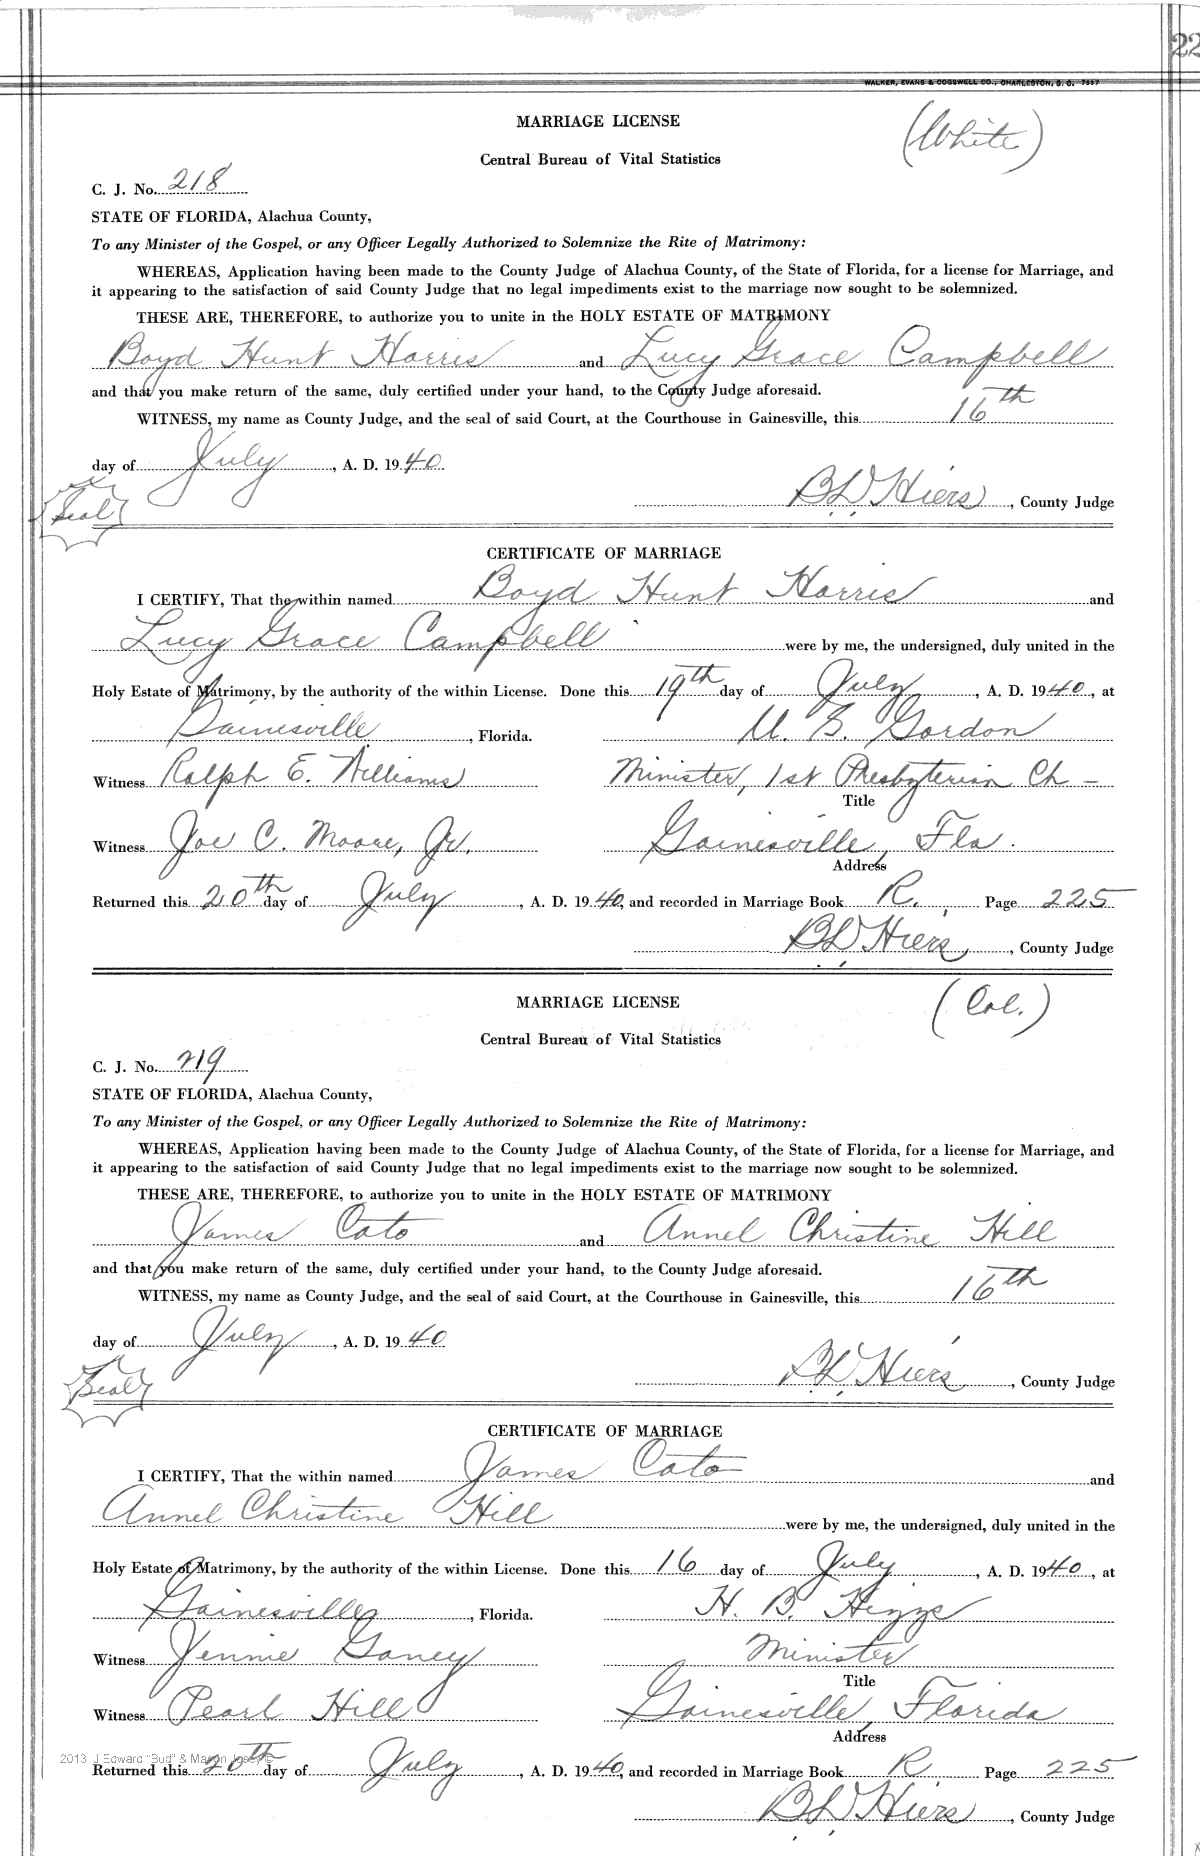 22
WALKER, EVANS & COGSWELL CO., CHARLESTON, S. C. 7337
MARRIAGE LICENSE
(White)
Central Bureau of Vital Statistics
C. J. No. 218
STATE OF FLORIDA, Alachua County,
To any Minister of the Gospel, or any Officer Legally Authorized to Solemnize the Rite of Matrimony:
WHEREAS, Application having been made to the County Judge of Alachua County, of the State of Florida, for a license for Marriage, and
it appearing to the satisfaction of said County Judge that no legal impediments exist to the marriage now sought to be solemnized.
THESE ARE, THEREFORE, to authorize you to unite in the HOLY ESTATE OF MATRIMONY
Boyd Hunt Harris and Lucy Grace Campbell
and that you make return of the same, duly certified under your hand, to the County Judge aforesaid.
WITNESS, my name as County Judge, and the seal of said Court, at the Courthouse in Gainesville, this 16th
day of July, A. D. 1940
Seal
BD Hiers, County Judge
CERTIFICATE OF MARRIAGE
I CERTIFY, That the within named Boyd Hunt Harris and
Lucy Grace Campbell were by me, the undersigned, duly united in the
Holy Estate of Matrimony, by the authority of the within License. Done this 19th day of July, A. D. 1940, at
Gainesville, Florida. U. S. Gordon
Witness Ralph E. Williams Minister, 1st Presbyterian Ch -
Title
Witness Joe C. Moore, Jr. Gainesville, Fla.
Address
Returned this 20th day of July, A. D. 1940, and recorded in Marriage Book R. Page 225
BD Hiers, County Judge
MARRIAGE LICENSE
(Col.)
Central Bureau of Vital Statistics
C. J. No. 219
STATE OF FLORIDA, Alachua County,
To any Minister of the Gospel, or any Officer Legally Authorized to Solemnize the Rite of Matrimony:
WHEREAS, Application having been made to the County Judge of Alachua County, of the State of Florida, for a license for Marriage, and
it appearing to the satisfaction of said County Judge that no legal impediments exist to the marriage now sought to be solemnized.
THESE ARE, THEREFORE, to authorize you to unite in the HOLY ESTATE OF MATRIMONY
James Cato and Annel Christine Hill
and that you make return of the same, duly certified under your hand, to the County Judge aforesaid.
WITNESS, my name as County Judge, and the seal of said Court, at the Courthouse in Gainesville, this 16th
day of July, A. D. 1940
Seal
BD Hiers, County Judge
CERTIFICATE OF MARRIAGE
I CERTIFY, That the within named James Cato and
Annel Christine Hill were by me, the undersigned, duly united in the
Holy Estate of Matrimony, by the authority of the within License. Done this 16 day of July, A. D. 1940, at
Gainesville, Florida. H. B. Higgs
Witness Jennie Ganey Minister
Title
Witness Pearl Hill Gainesville, Florida
Address
2013 J Edward "Bud" & Marion ©
Returned this 20th day of July, A. D. 1940, and recorded in Marriage Book R Page 225
BD Hiers, County Judge